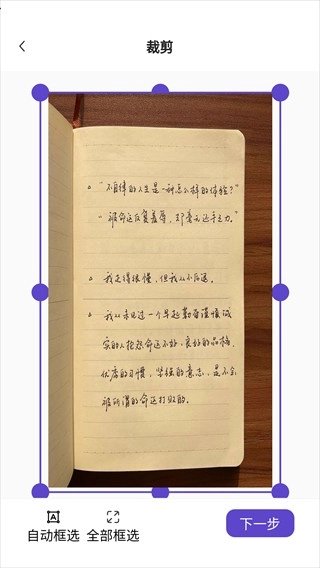 裁剪
。"不自律的人生是一种怎么样的体验?"
"被命运反复羞辱,却毫无还手之力。"
。我走得很慢,但我从不后退。
。我从未见过一个早起勤奋谨慎诚
实的人抱怨命运不好,良好的品格,
优秀的习惯,坚强的意志,是不会
被所谓的命运打败的。
自动框选 全部框选
下一步